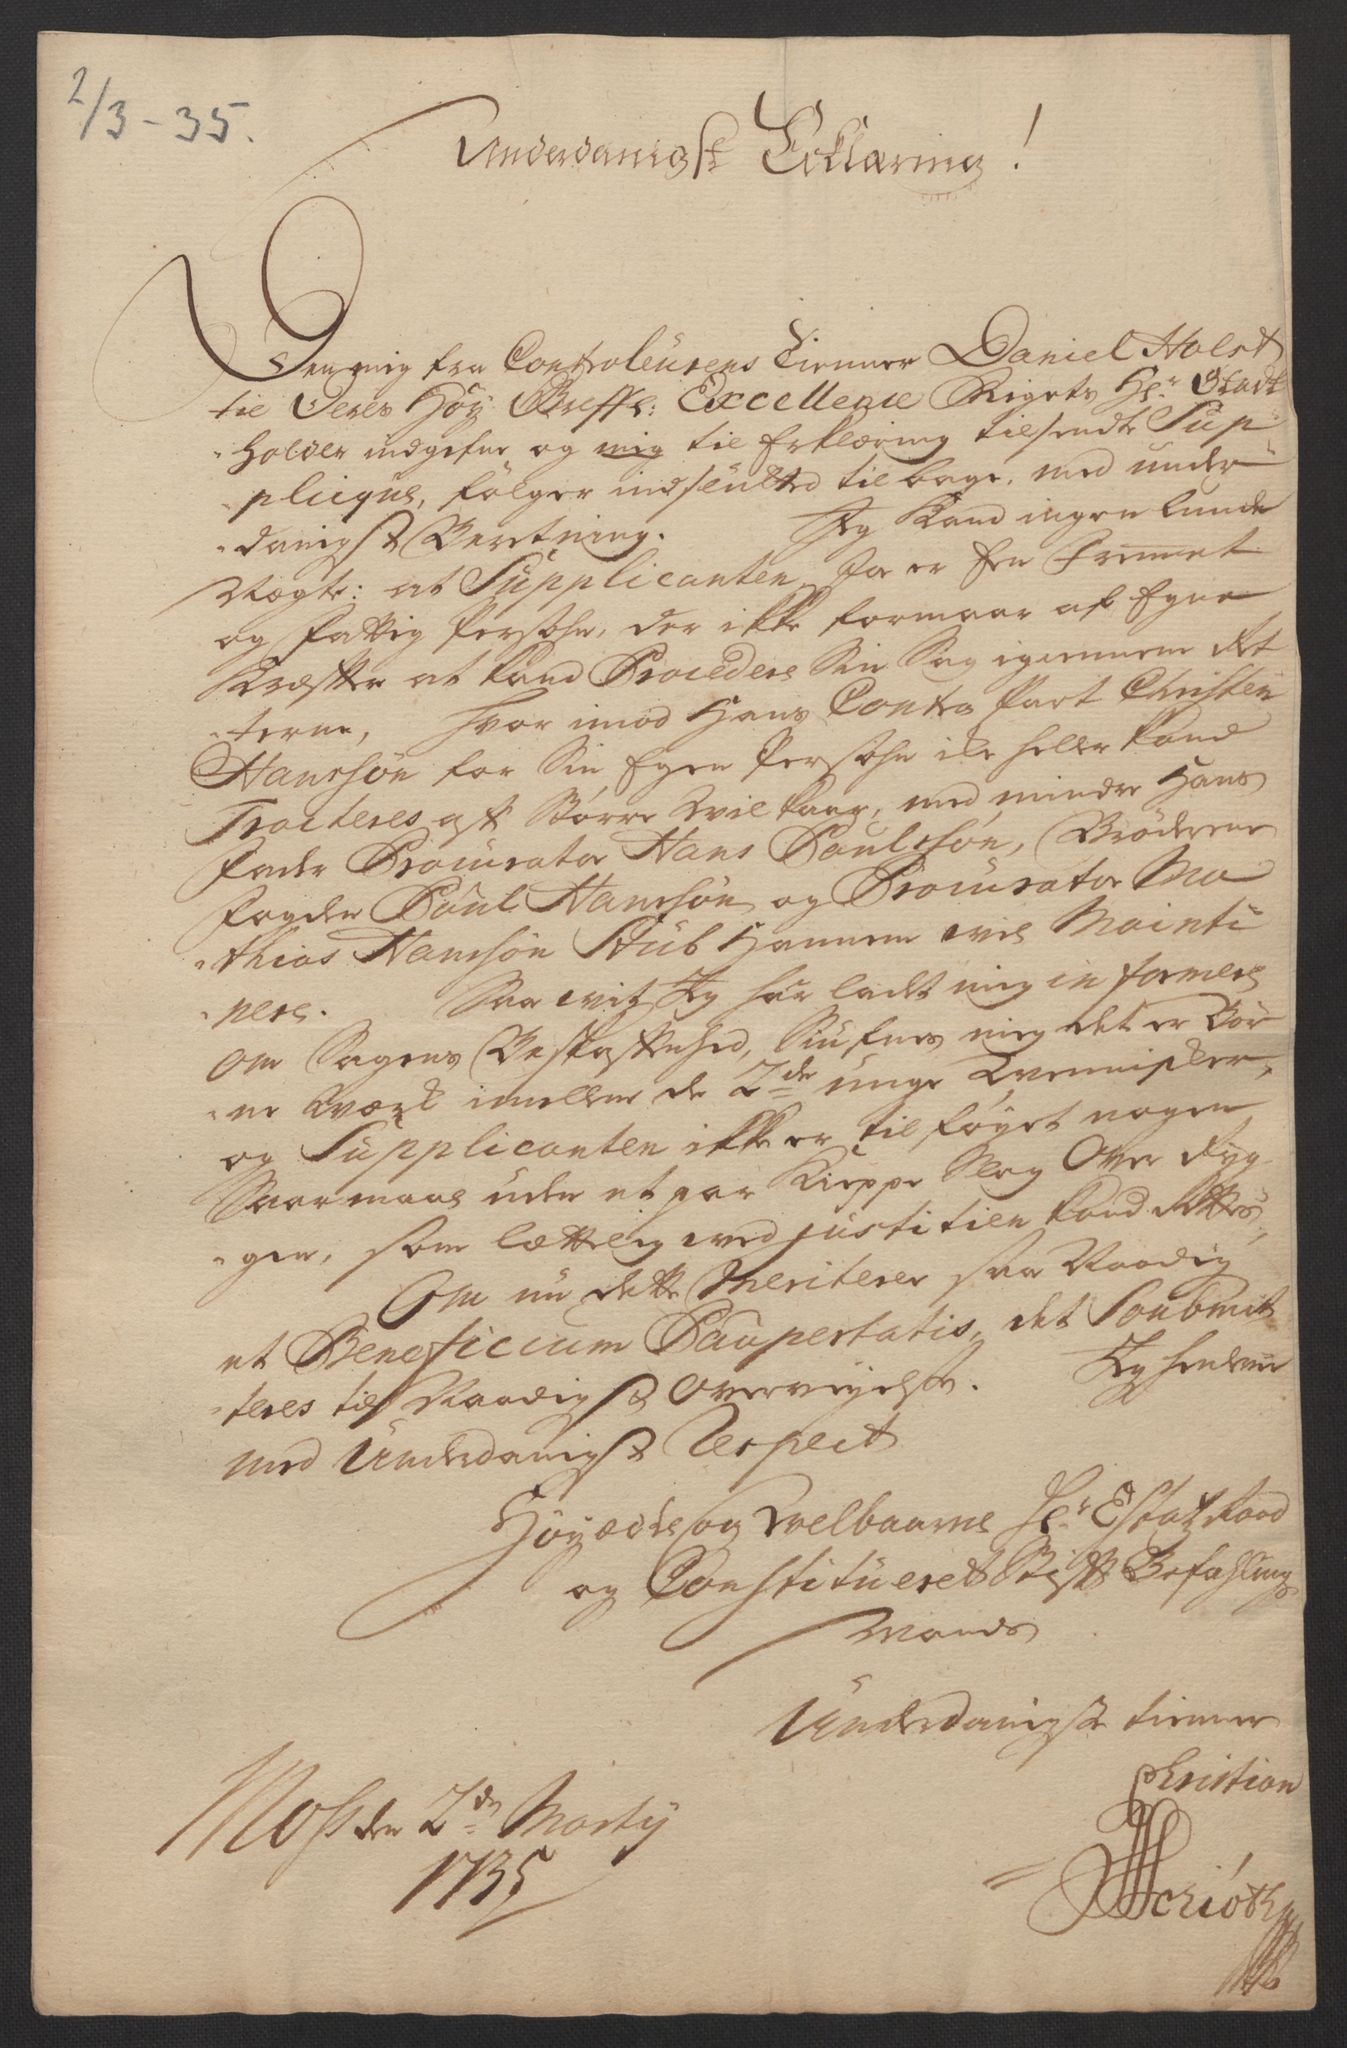 2/3-35.
Underdanigst Erklæring!
Den mig fra Controleurens Tienner Daniel Holst
til Deres Höÿ Greffl: Excellence Rigets Hr. Stadt-
holder indgifne og mig til Erklæring tilsendte Sup-
plique, fölger indslutted tilbage, med under-
danigst Beretning. Jeg kand ingenlunde
Nægte: at Supplicanten, jo er een fremmet
og fattig Persohn, der ikke formaar af Egne
Kræffter at kand Procedere Sin Sag igiennem Ret-
terne, hvor imod Hans Contra Part Christen
Hansøn for Sin Egen Persohn ike heller kand
Tracteres af Større Vilkaar, med mindre Hans
Fader Procurator Hans Poulsøn, Brödrene
Fogden Poul Hansøn og Procurator Ma-
thias Hansøn Stub Hannem vil Mainti-
nere. Saa vit Jeg har ladt mig informere
om Sagens Beskaffenhed, Siufnes mig det er Bör-
ne Værk imellem de 2de unge Qvennisker,
og Supplicanten ikke er tilføyet nogen
Saarmaal uden et par Kieppe Slag Over Ryg-
gen, som lættelig ved justitien kand Rettes,
Om nu dette Meriterer saa Naadig
et Beneficium Paupertatis, det Soubmit-
teres til Naadigst Overveyelse. Jeg henlever
med Underdanigst Respect
Höyædle og Velbaarne Hr. Etatz Raad
og Constitueret Stifft Befahlings
Mands
Underdanigste tienner
Christian
Moss den 2den Marty
1735